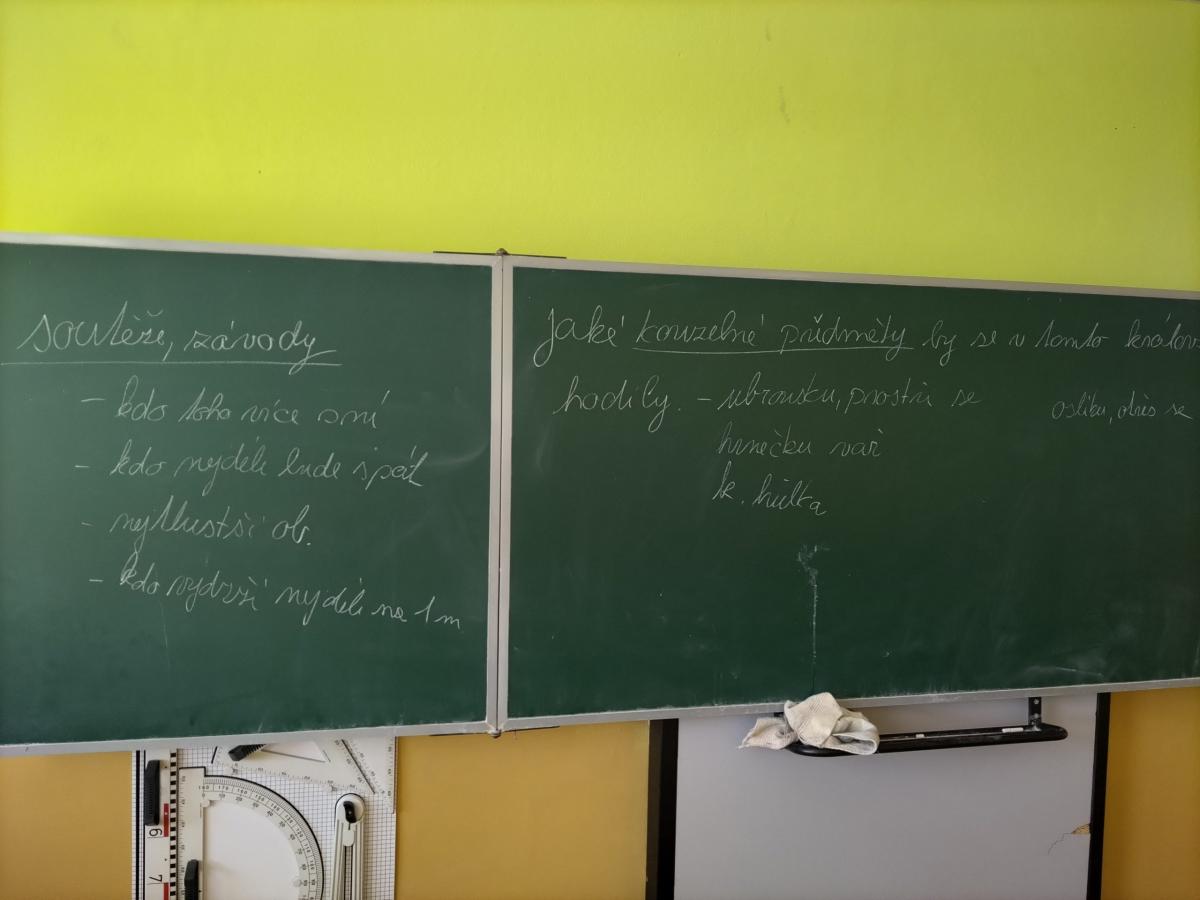 soutěže, závody
- kdo toho více sní
- kdo nejdéle bude spát
- nejtlustší ob.
- kdo vydrží nejdéle na 1 m
Jaké kouzelné předměty by se v tomto králov
hodily. - ubrousku, prostři se
oslíku, otřes se
hrnečku vař
k. hůlka
6
7